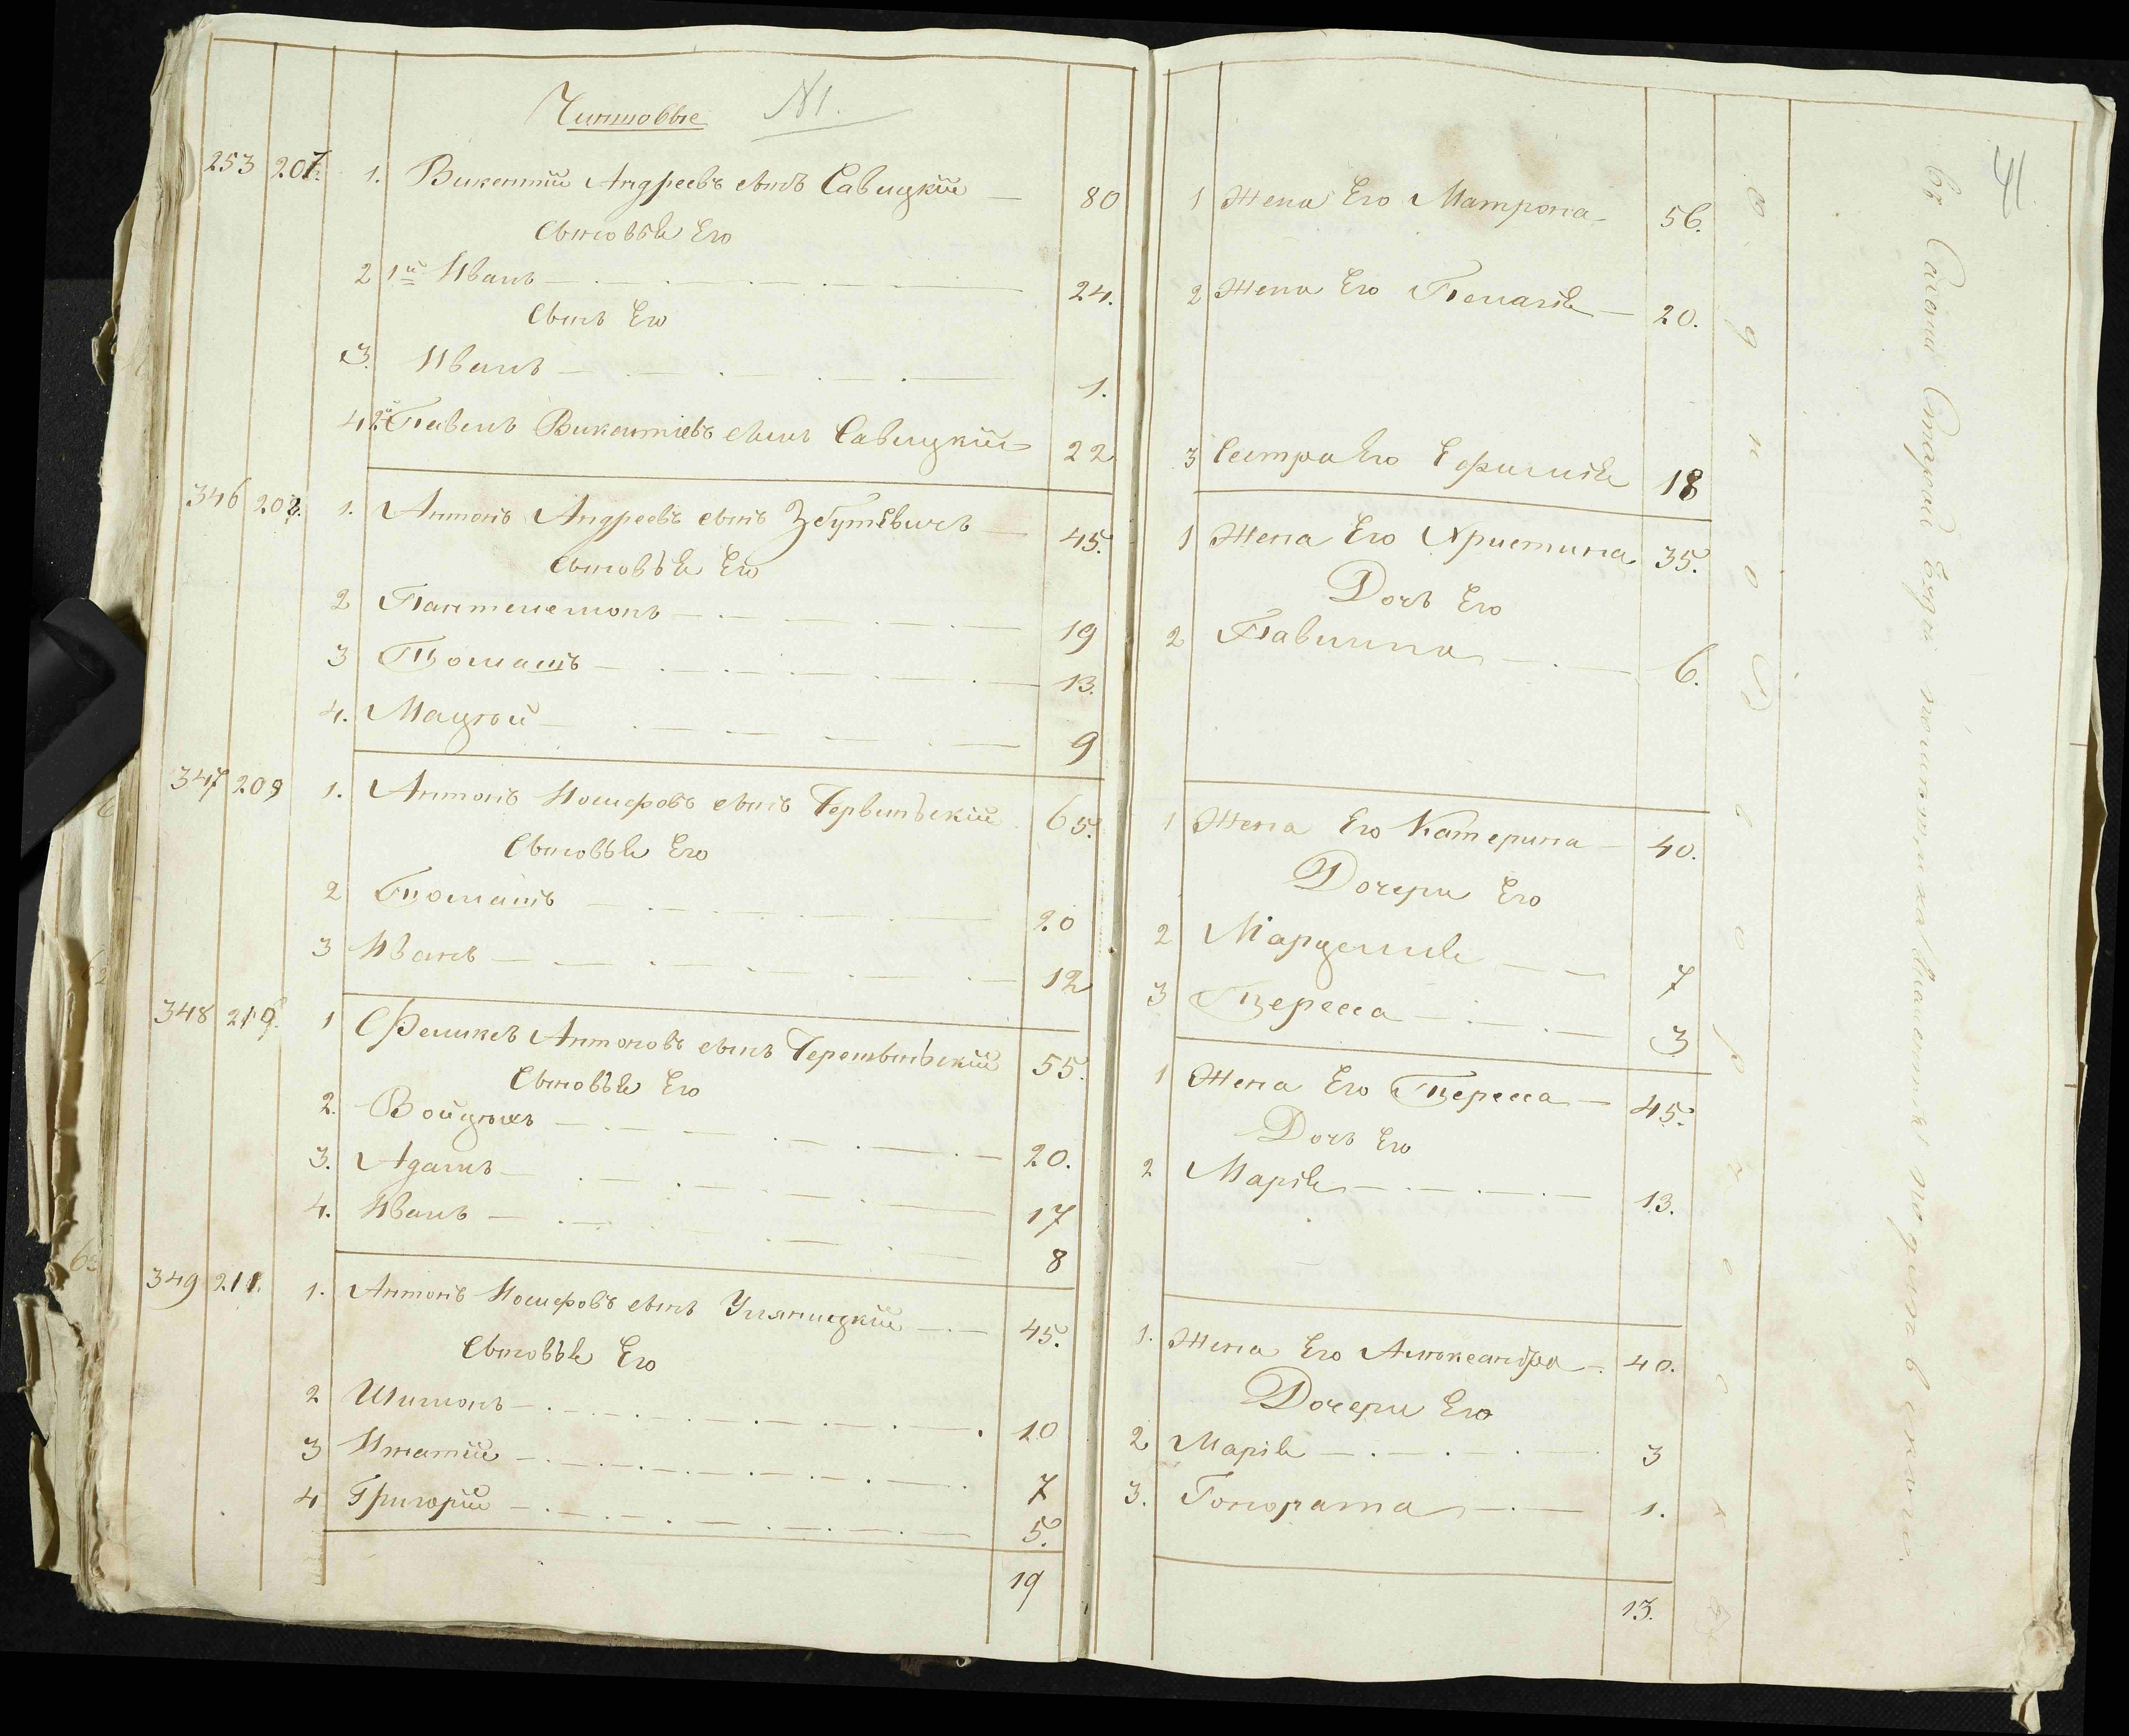 Чиншовые №1.
253 207. 1. Викентій Андреевъ сынъ Савицкій — 80
Сыновья Его
2 1й Иванъ — 24.
Сынъ Его
3. Иванъ — 1.
4 2й Павелъ Викентіевъ сынъ Савицкій 22
346 208. 1. Антонъ Андреевъ сынъ Збутевичъ — 45.
Сыновья Его
2 Пантелемонъ — 19
3 Томашъ — 13.
4. Мацѣй — 9
347 209 1. Антонъ Іосифовъ сынъ Червинскій 65.
Сыновья Его
2 Томашъ — 20
3 Иванъ — 12
348 210. 1 Феликсъ Антоновъ сынъ 55.
Сыновья Его
2. Войцѣхъ — 20.
3. Адамъ — 17
4. Иванъ — 8
349 211. 1. Антонъ Іосифовъ сынъ Уляницкій — 45.
Сыновья Его
2 Шимонъ — 10
3 Игнатій — 7
4 Григорій — 5.
19
41
1 Жена Его Матрона — 56.
2 Жена Его Пелагія — 20.
3 Сестра Его Ефимія 18
1 Жена Его Христина 35.
Дочь Его
2 Павлина — 6.
1 Жена Его Катерина — 40.
Дочери Его
2 Марцелия — 7
3 Тереса — 3
1 Жена Его Тереса — 45.
Дочь Его
2 Марія — 13.
1. Жена Его Александра — 40.
Дочери Его
2 Марія — 3
3. Гонората — 1.
13.
въ Старой